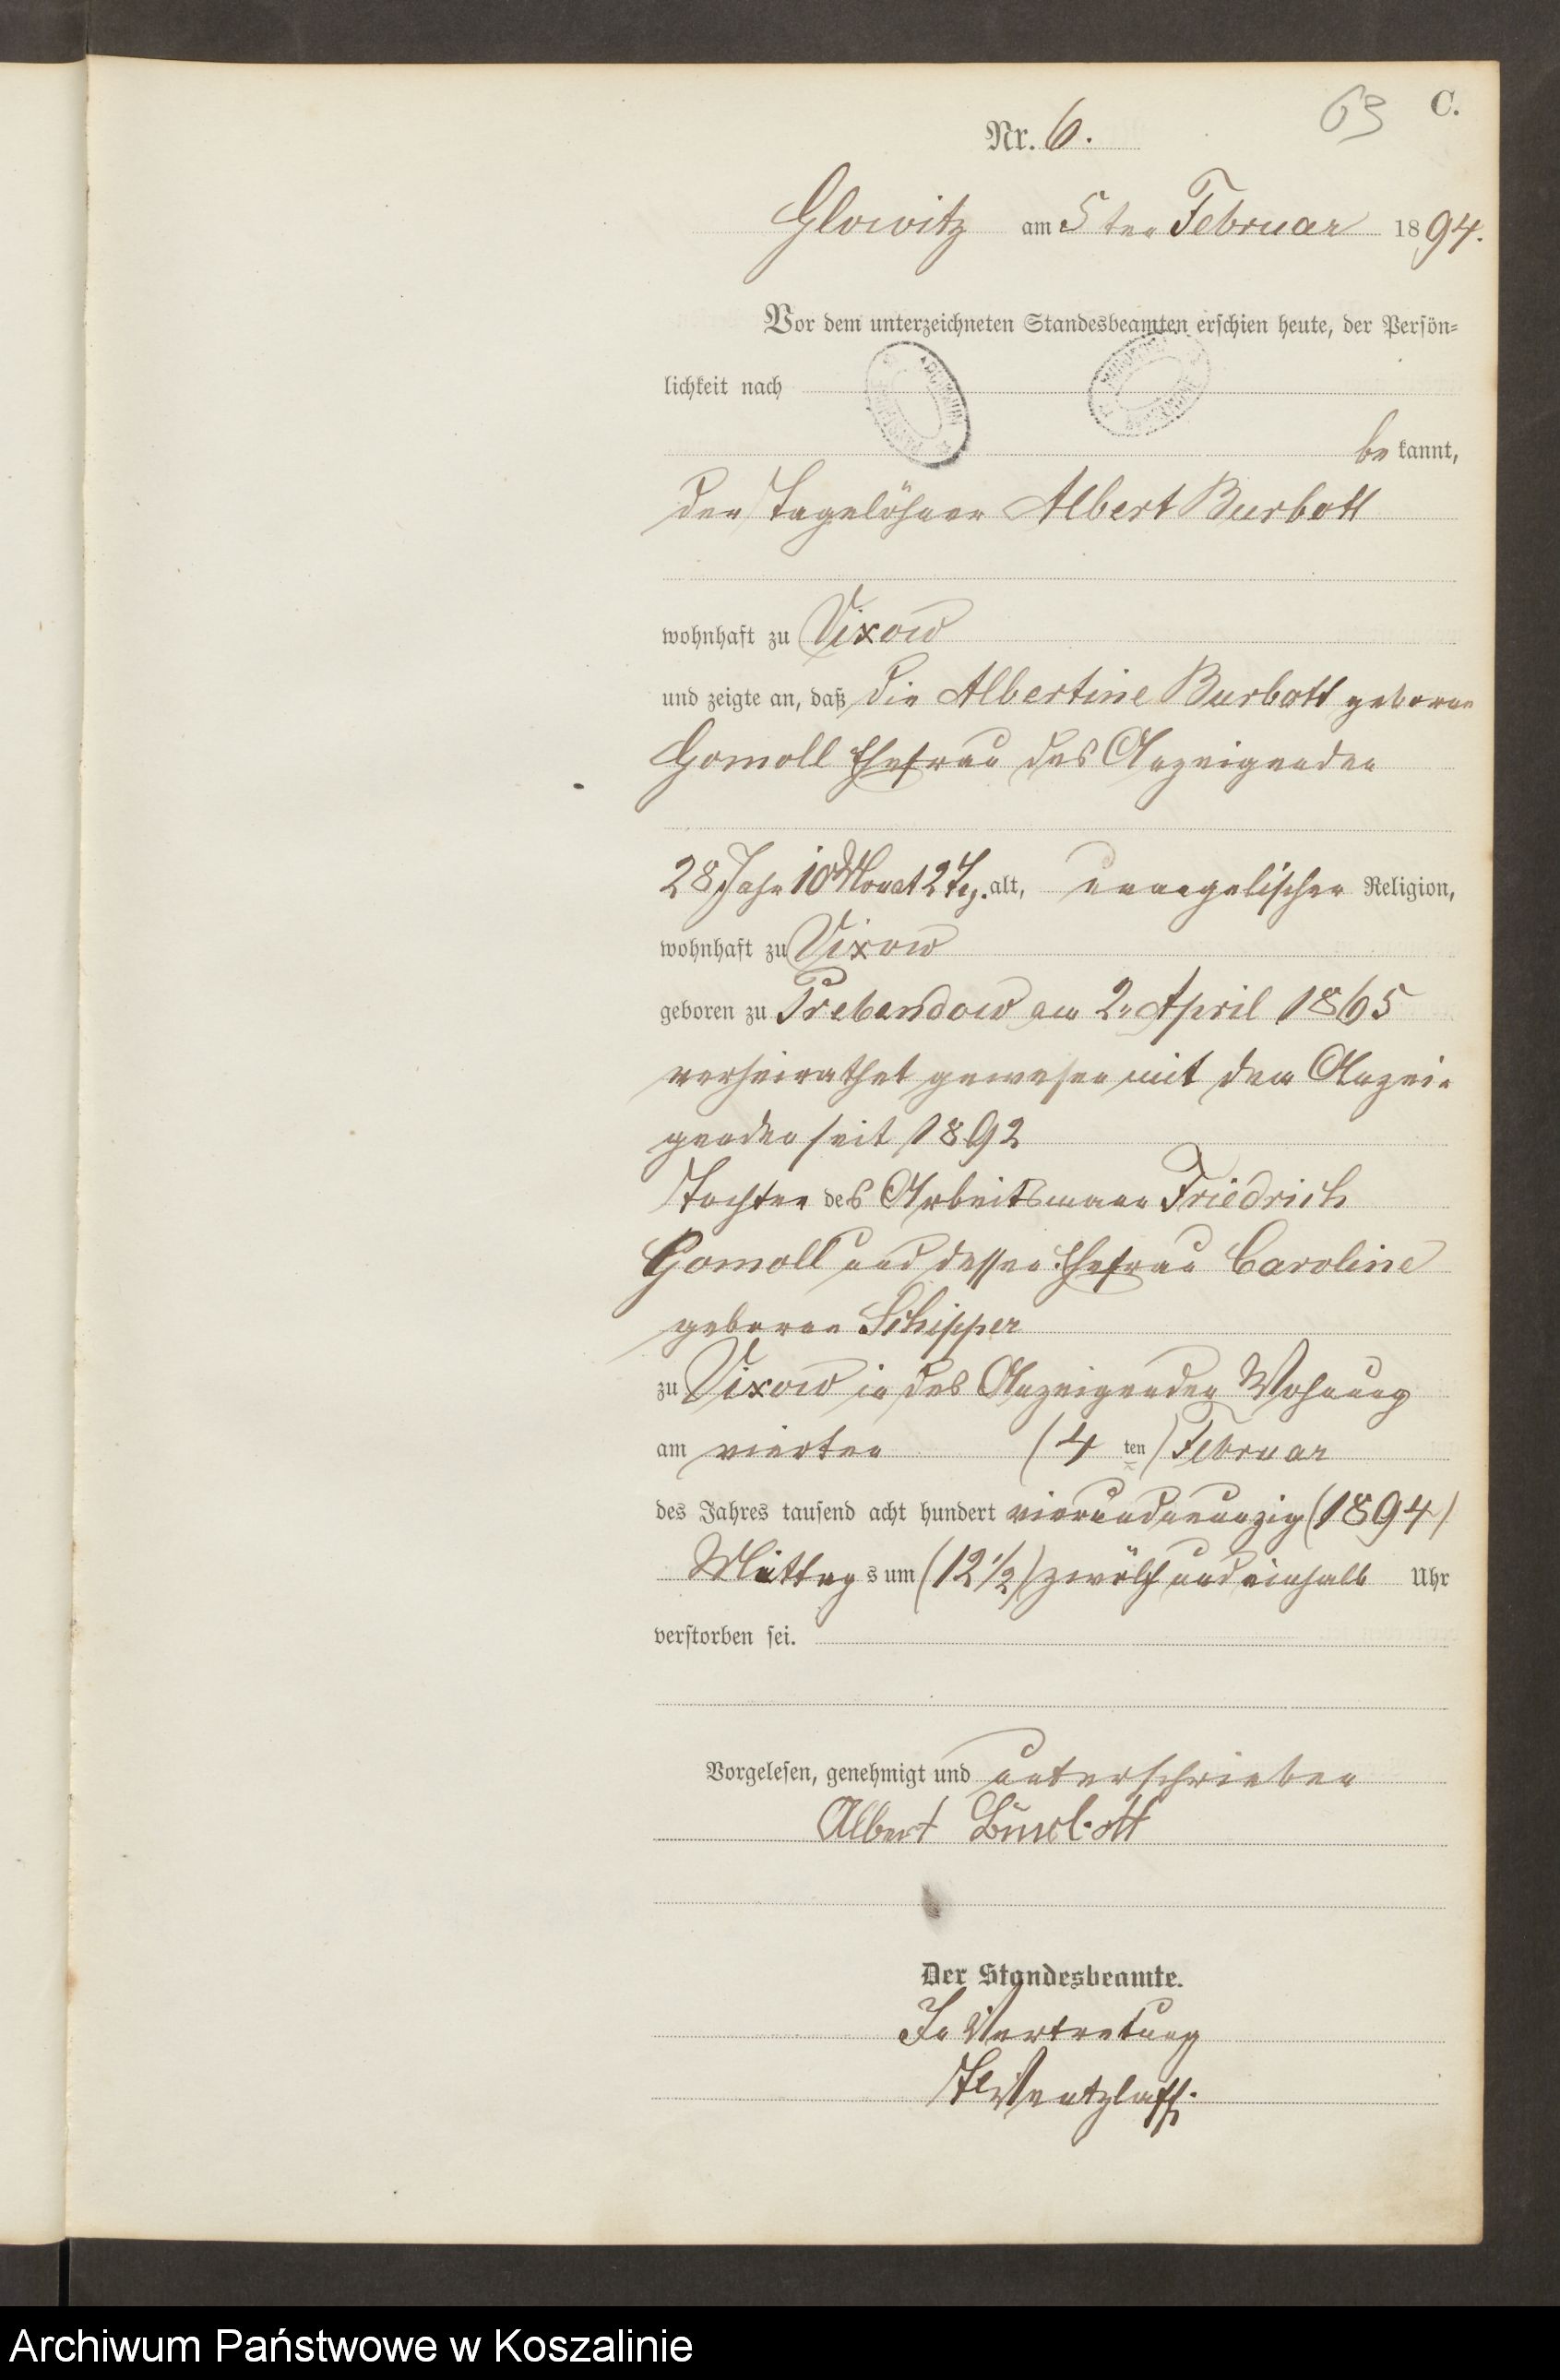 63
C.
Nr. 6.
Glowitz am 5ten Februar 1894.
Vor dem unterzeichneten Standesbeamten erschien heute, der Persön=
lichkeit nach
be kannt,
der Tagelöhner Albert Burbott
wohnhaft zu Vixow
und zeigte an, daß die Albertine Burbott geborne
Gomoll Ehefrau des Anzeigenden
28 Jahr 10 Monat 2 Tg. alt, evangelischer Religion,
wohnhaft zu Vixow
geboren zu Prebendow am 2. April 1865
verheirathet gewesen mit dem Anzei-
genden seit 1892
Tochter des Arbeitsmann Friedrich
Gomoll und dessen Ehefrau Caroline
geborne Schipper
zu Vixow in des Anzeigenden Wohnung
am vierten (4 ten) Februar
des Jahres tausend acht hundert vierundneunzig (1894)
Mittags um (12 1/2) zwölf und einhalb Uhr
verstorben sei.
Vorgelesen, genehmigt und unterschrieben
Albert Burbott
Der Standesbeamte.
In Vertretung
Wentzlaff.
Archiwum Państwowe w Koszalinie